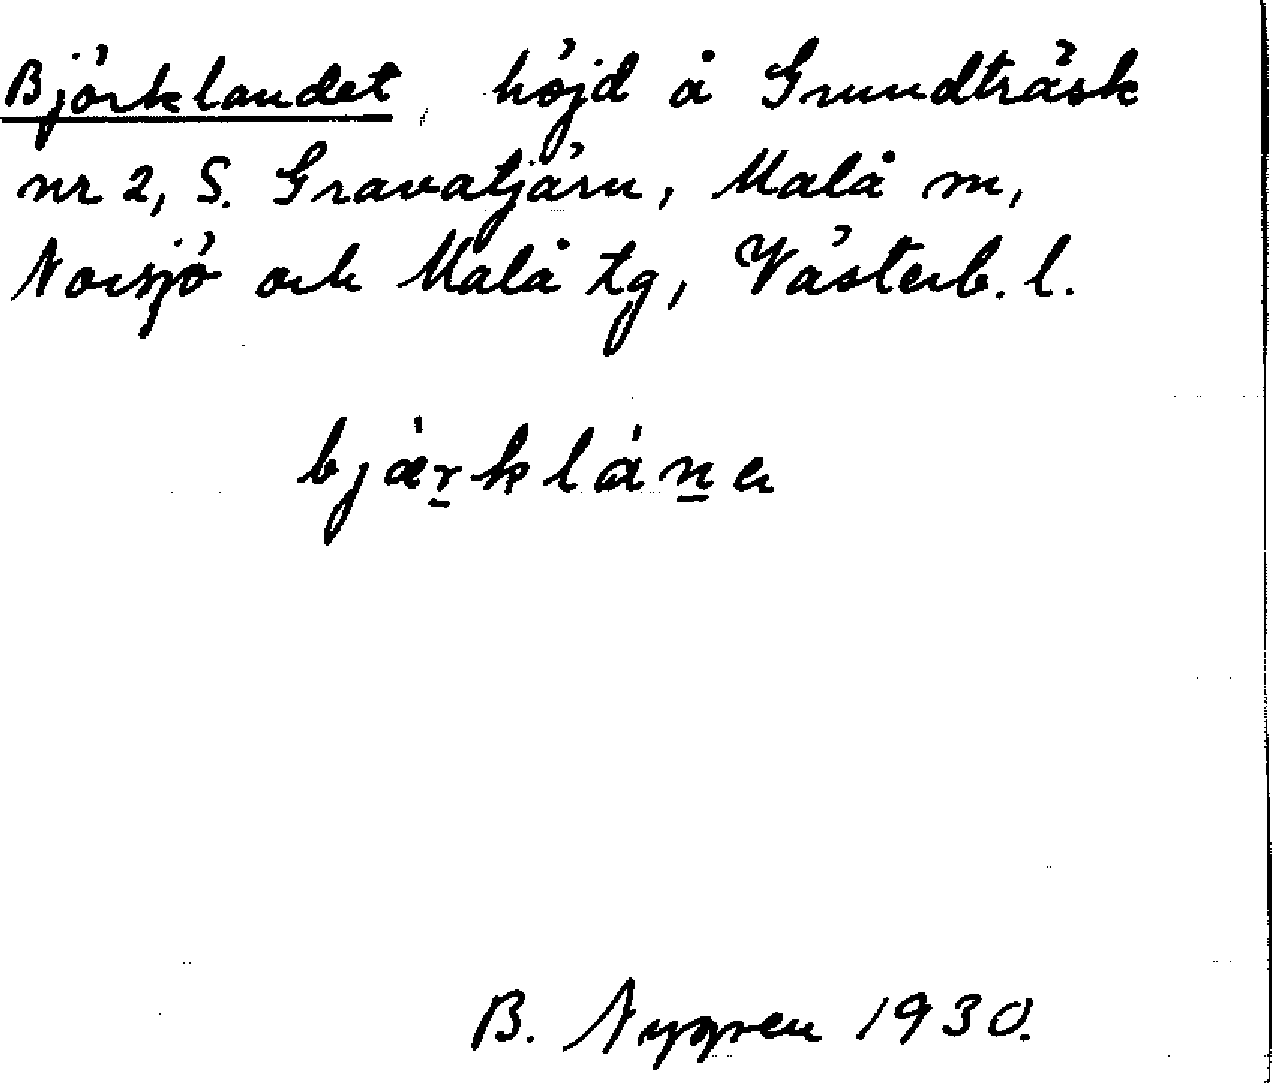 Björklandet, höjd å Grundträsk
nr 2, S. Gravatjärn, Malå sn,
Norsjö och Malå tg, Västerb. l.
bjæ̀r̠klána
B. Nygren 1930.